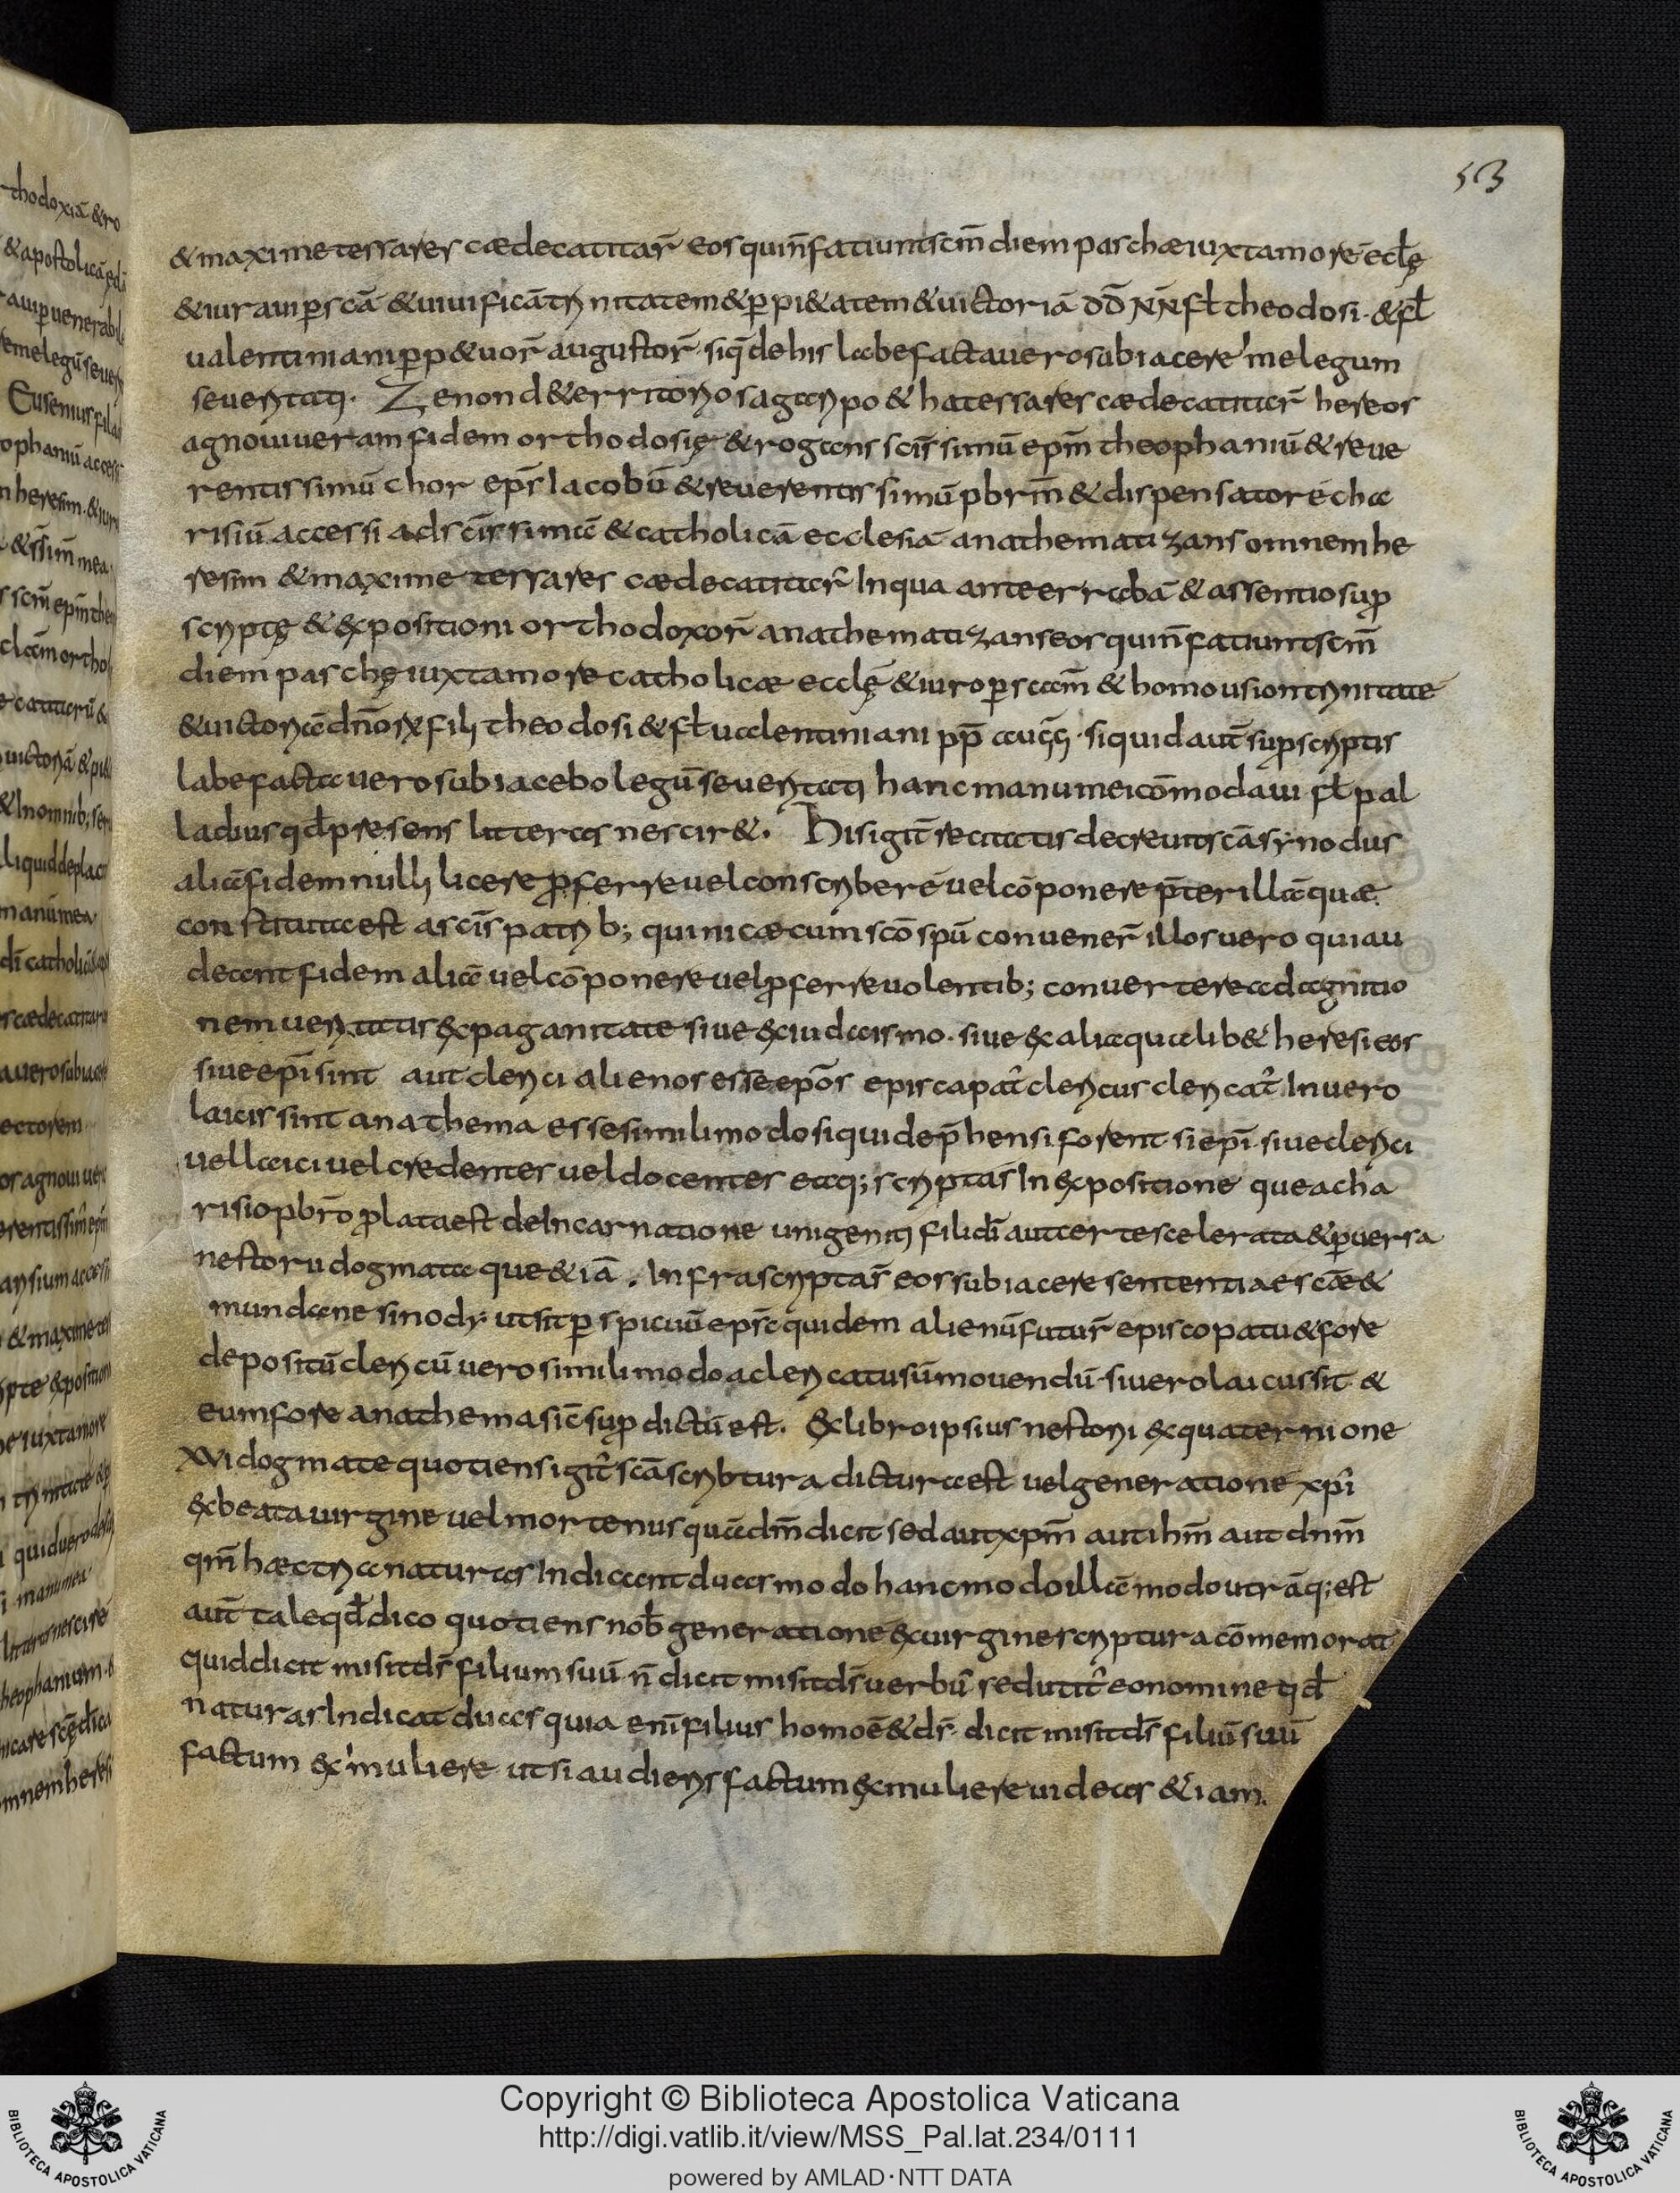 53
& maxime tessares cædecatitar̄ eos qui n̄ fatiunt scm̄ diem paschæ iuxta morē ecl̄ę
& iuraui ꝑ scā & uiuificā trinitatem & ꝑ pi&atem & uictoriā dd̄ nn̄ fl̄ theodosi · & fl̄
ualentiniani ꝑp&uor̄ augustor̄ · siq̄ de his labefactauero subiacere me legum
seueritati · Zenon d& erritorio sagari po & ha tessares cædecatitar̄ hereos
agnoui ueram fidem orthodosię & rogans scis̄simū epm̄ theophaniū & reue
rentissimū chor eps̄ Iacobū & reuerentissimū pbrm̄ & dispensatorē cha
risiū accessi ad scis̄simā & catholicā ecclesiā anathematizans omnem he
resim & maxime tessares cædecatitar̄ In qua ante errabā & assentio suꝑ
scriptę & expositioni orthodoxor̄ anathematizans eos qui n̄ fatiunt scm̄
diem paschę iuxta more catholicæ ecclę̄ & iuro ꝑ scām & homousion trinitate
& uictoriā dn̄orꝝ fili theodosi & fl̄ ualentiniani pp̄ augḡ · siquid aut̄ suꝑscriptis
labefacta uero subiacebo legū seueritati hanc manu mei cōmodaui fl̄ pal
ladius qd̄ presens litteras nescir& · His igit̄ recitatis decreuit scā synodus
aliā fidem nulli licere ꝓferre uel conscribere uel cōponere p̄ter illā quæ
constituta est a scīs patrib; qui nicæ cum scō spū conuener̄ illos uero qui au
deant fidem aliā uel cōponere uel ꝓferre uolentib; conuertere ad agnitio
nem ueritatis ex paganitate siue ex iudaismo · siue ex alia qualib& heresi eos
siue epī sint aut clerici alienos esse epōs episcapat̄ clericus clericat̄ In uero
laicis sint anathema esse simili modo siqui dep̄hensi forent si epī · siue clerici
uel laici uel credentes uel docentes eaq; scriptas In expositione que a cha
risio pbr̄o ꝓlata est de Incarnatione unigeniti fili dī aut certe scelerata & ꝑuersa
nestoru dogmata que & iā . Infra scriptas̄ eos subiacere sententiae scǣ &
mundane sinody · ut sit ꝑspicuū eps̄ quidem alienū futur̄ episcopatu & fore
depositū clericū uero simili modo a clericatu sūmouendū · si uero laicus sit &
eum fore anathema sic̄ suꝑdictū est · Ex libro ipsius nestorii ex quaternione
xvi dogmate quotiens igit̄ scā scribtura dictura est uel generatione xpī
ex beata uirgine uel morte nusquā dm̄ dicit sed aut xpm̄ aut ihm̄ aut dnm̄
qm̄ hæc tria naturas Indicant duas modo hanc modo illā modo utrāq; est
aut̄ tale qd̄ dico quotiens nob̄ generationē ex uirgine scriptura cōmemorat
quid dicit misit ds̄ filium suū n̄ dicit misit ds̄ uerbū sed utit̄ eo nomine qd̄
naturas Indicat duas quia enī filius homo ē & ds̄ · dicit misit ds̄ filiū suū
factum ex muliere ut si audieris factum ex muliere uideas & iam
Copyright © Biblioteca Apostolica Vaticana
http://digi.vatlib.it/view/MSS_Pal.lat.234/0111
powered by AMLAD·NTT DATA
BIBLIOTECA APOSTOLICA VATICANA
BIBLIOTECA APOSTOLICA VATICANA